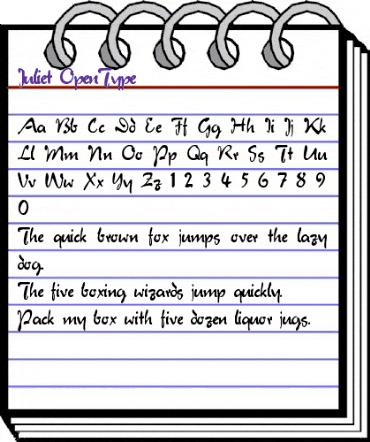 Juliet OpenType
Aa Bb Cc Dd Ee Ff Gg Hh Ii Jj Kk
Ll Mm Nn Oo Pp Qq Rr Ss Tt Uu
Vv Ww Xx Yy Zz 1 2 3 4 5 6 7 8 9
0
The quick brown fox jumps over the lazy
dog.
The five boxing wizards jump quickly.
Pack my box with five dozen liquor jugs.